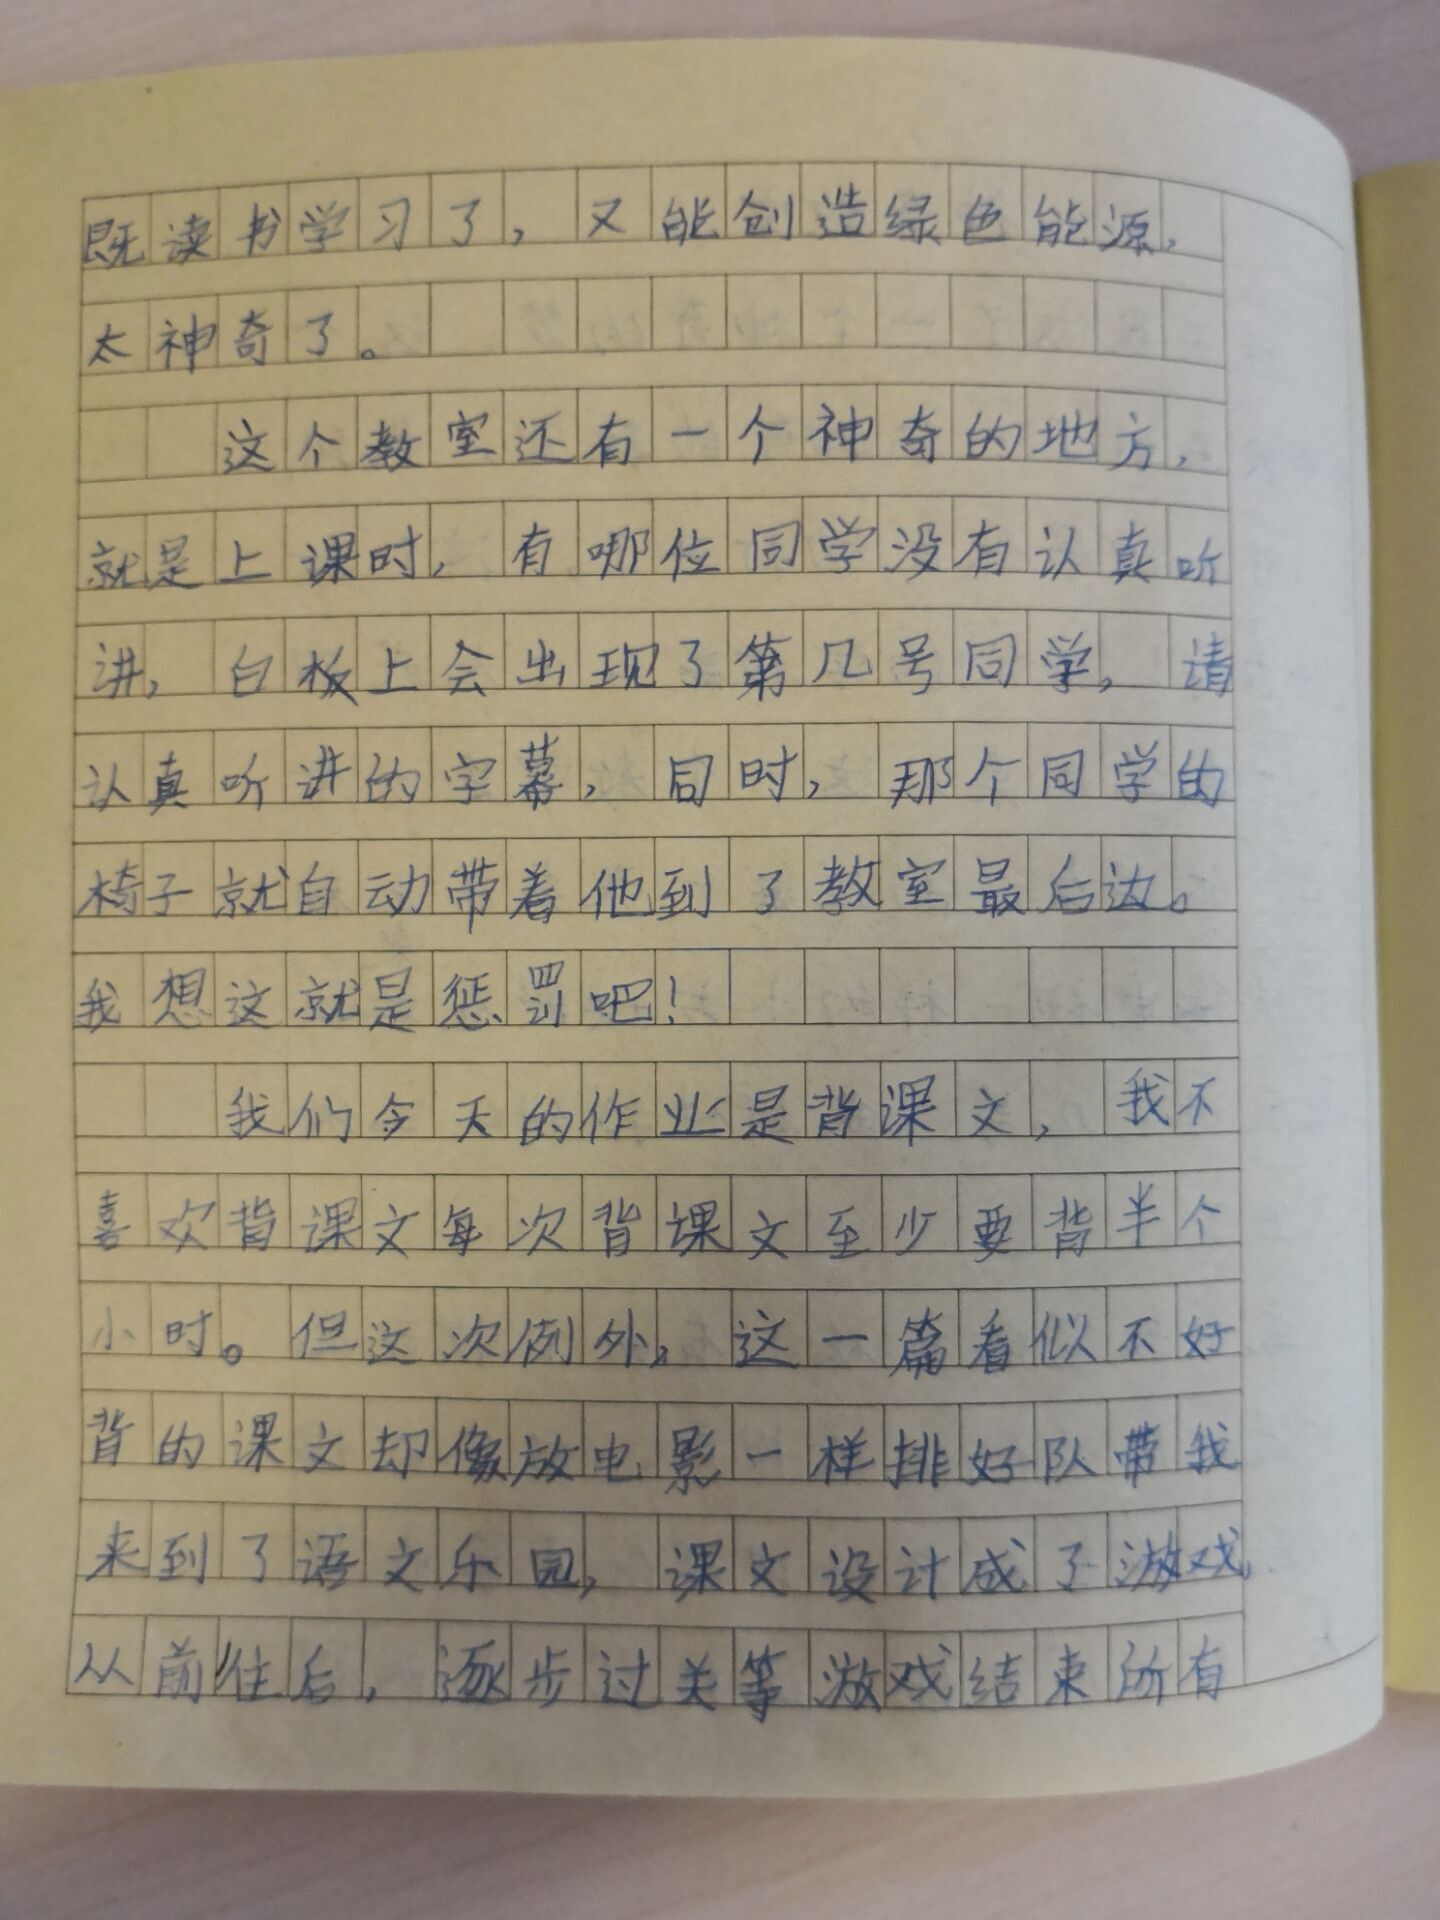 既读书学习了，又能创造绿色能源，
太神奇了。
这个教室还有一个神奇的地方，
就是上课时，有哪位同学没有认真听
讲，白板上会出现了第几号同学，请
认真听讲的字幕，同时，那个同学的
椅子就自动带着他到了教室最后边。
我想这就是惩罚吧！
我们今天的作业是背课文，我不
喜欢背课文每次背课文至少要背半个
小时。但这次例外，这一篇看似不好
背的课文却像放电影一样排好队带我
来到了语文乐园，课文设计成了游戏，
从前往后，逐步过关等游戏结束所有